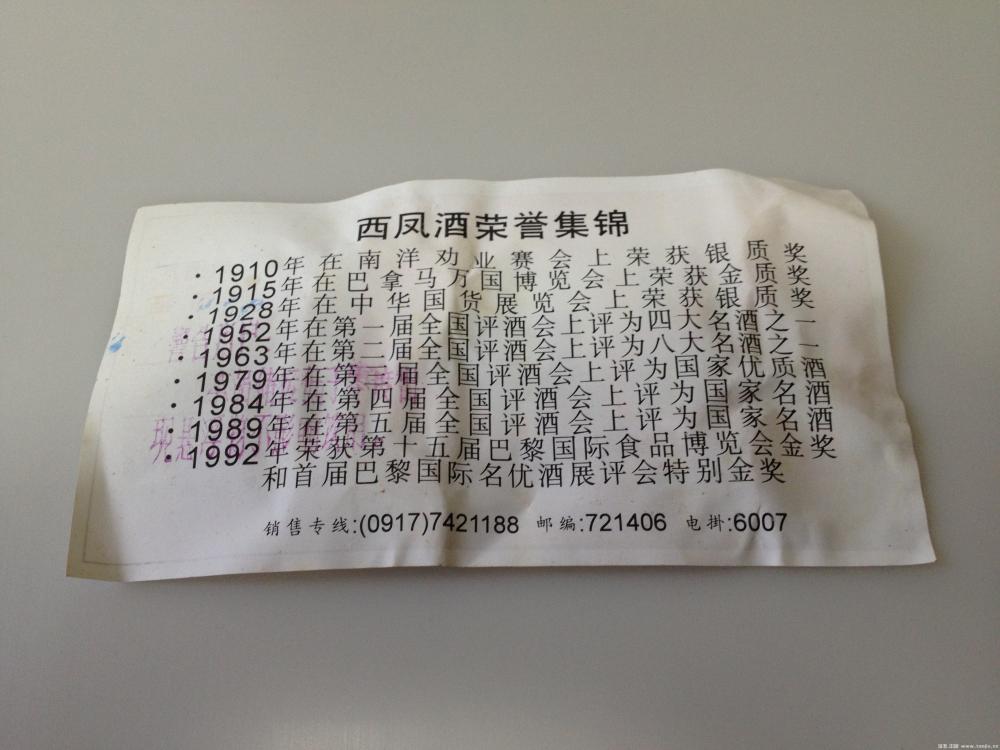 西凤酒荣誉集锦
·1910年在南洋劝业赛会上荣获银质奖
·1915年在巴拿马万国博览会上荣获金质奖
·1928年在中华国货展览会上荣获银质奖
·1952年在第一届全国评酒会上评为四大名酒之一
·1963年在第二届全国评酒会上评为八大名酒之一
·1979年在第三届全国评酒会上评为国家优质酒
·1984年在第四届全国评酒会上评为国家名酒
·1989年在第五届全国评酒会上评为国家名酒
·1992年荣获第十五届巴黎国际食品博览会金奖
和首届巴黎国际名优酒展评会特别金奖
销售专线:(0917)7421188 邮编:721406 电掛:6007